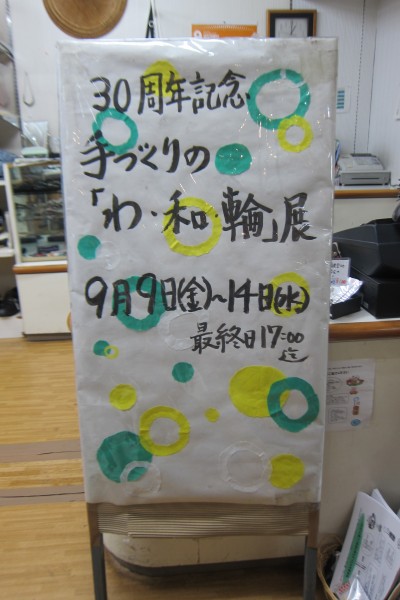 30周年記念
手づくりの
「わ・和・輪」展
9月9日(金)～14日(水)
最終日17:00
迄